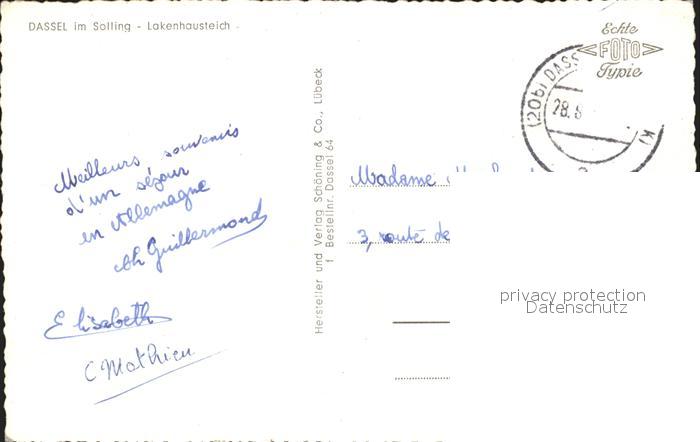 DASSEL im Solling - Lakenhausteich
Echte
FOTO
Typie
(20b) DASS
28.8
K)
Meilleurs souvenirs
d'un séjour
en Allemagne
Ch Guillermond
Elisabeth
C Mathieu
Hersteller und Verlag Schöning & Co., Lübeck
1 Bestellnr. Dassel 64
Madame
3, route de
privacy protection
Datenschutz